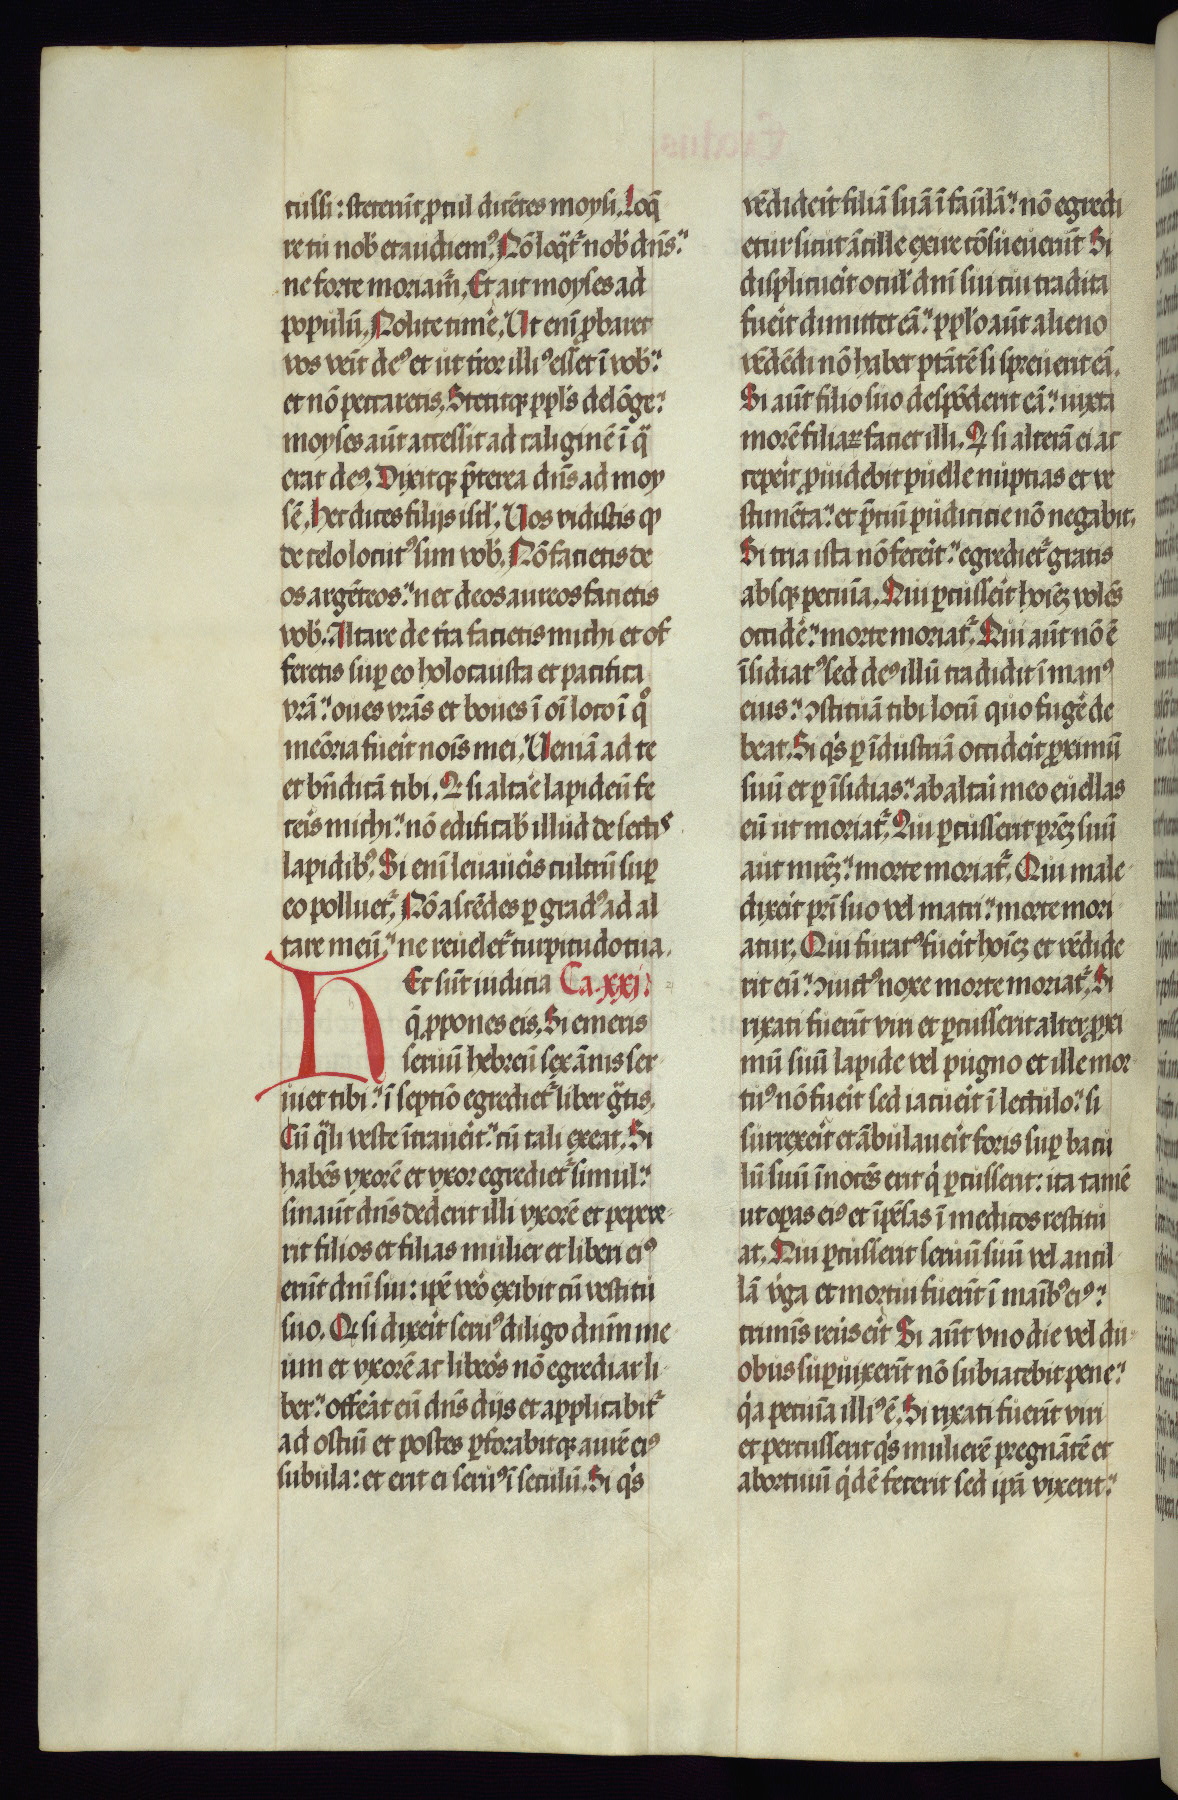 cussi: steterūt ꝓcul dicētes moysi. Loq̄
re tu nob̄ et audiemꝰ. Nō loq̄tᷣ nob̄ dn̄s:
ne forte moriam̄. Et ait moyses ad
populū. Nolite timē. Ut eni ꝓbaret
vos veīt deꝰ et ut t̄ror illiꝰ esset ī vob̄:
et nō peccaretis. Stetitqꝫ ppl̄s de lōge:
moyses aūt accessit ad caliginē ī q̄
erat deꝰ. Dixitqꝫ p̄terea dn̄s ad moy
sē. hec dices filijs isrl̄. Uos vidistis ꝙ
de celo locutꝰ sim vob̄. Nō facietis de
os argēteos: nec deos aureos facietis
vob̄. Altare de t̄ra facietis michi et of
feretis suꝑ eo holocausta et pacifica
vr̄a: oues vr̄as et boues ī oī loco ī qͦ
meōria fueīt noīs mei. Ueniā ad te
et bn̄dicā tibi. Qꝛ si altaē lapideū fe
ceīs michi: nō edificab̄ illud de sectis
lapidibꝰ. Si eni leuaueīs cultrū suꝑ
eo polluetᷣ. Nō ascēdes ꝑ gradꝰ ad al
tare meū: ne reueletᷣ turpitudo tua.
Hec sūt iudicia Ca. xxj.
q̄ ꝓpones eis. Si emeris
seruū hebreū sex ānis ser
uiet tibi: ī septiō egredietᷣ liber gͣtis.
Cū q̄li veste ītraueīt: cū tali exeat. Si
habēs vxorē et vxor egredietᷣ simul:
sin aūt dn̄s dederit illi vxorē et pepere
rit filios et filias mulier et liberi eiꝰ
erūt dn̄i sui: ip̄e veō exibit cū vestitu
suo. Qꝛ si dixeīt seruꝰ diligo dn̄m me
um et vxorē ac libeos nō egrediar li
ber: offeāt eū dn̄s dijs et applicabitᷣ
ad ostiū et postes ꝑforabitqꝫ aurē eiꝰ
subula: et erit ei seruꝰ ī seculū. Si qͥs
vēdideīt filiā suā ī faūlā: nō egredi
etur sicut ācille exire cōsueuerūt Si
displicueīt ocul̄ dn̄i sui cui tradita
fueīt dimittet eā: ppl̄o aūt alieno
vēdēdi nō habet ptātē si spreuerit eā.
Si aūt filio suo despōderit eā: iuxta
morē filiaꝝ faciet illi. Qꝛ si alterā ei ac
cepeīt ꝓuidebit puelle nuptias et ve
stimēta: et p̄ciū pudicicie nō negabit.
Si tria ista nō feceīt: egredietᷣ gratis
absqꝫ pecuīa. Qui ꝑcusseīt hoīeꝫ volēs
occidē: morte moriatᷣ. Qui aūt nō ē
īsidiatꝰ sed deꝰ illū tradidit ī manꝰ
eius: ↄstituā tibi locū quo fugē de
beat. Si qͥs ꝑ īdustriā occideīt ꝓximū
suū et ꝑ īsidias: ab altaī meo euellas
eū ut moriatᷣ. Qui ꝑcusserit pr̄eꝫ suū
aut mr̄eꝫ: morte moriatᷣ. Qui male
dixeīt pr̄i suo vel matri: morte mori
atur. Qui furatꝰ fueīt hoīeꝫ et vēdide
rit eū: ↄuictꝰ noxe morte moriatᷣ. Si
rixati fuerīt viri et ꝑcusserit alter ꝓxi
mū suū lapide vel pugno et ille mor
tuꝰ nō fueīt sed iacueīt ī lectulo: si
surrexeīt et ābulaueīt foris suꝑ bacu
lū suū īnocēs erit qͥ ꝑcusserit: ita tamē
ut oꝑas eiꝰ et īpēsas ī medicos restitu
at. Qui ꝑcusserit seruū suū vel ancil
lā v̄ga et mortui fuerīt ī maībꝰ eiꝰ:
crimīs reus eīt Si aūt vno die vel du
obus suꝑuixerīt nō subiacebit pene:
qͥa pecuīa illiꝰ ē. Si rixati fuerīt viri
et percusserit qͥs mulierē pregnātē et
abortiuū qͥdē fecerit sed ip̄a vixerit: